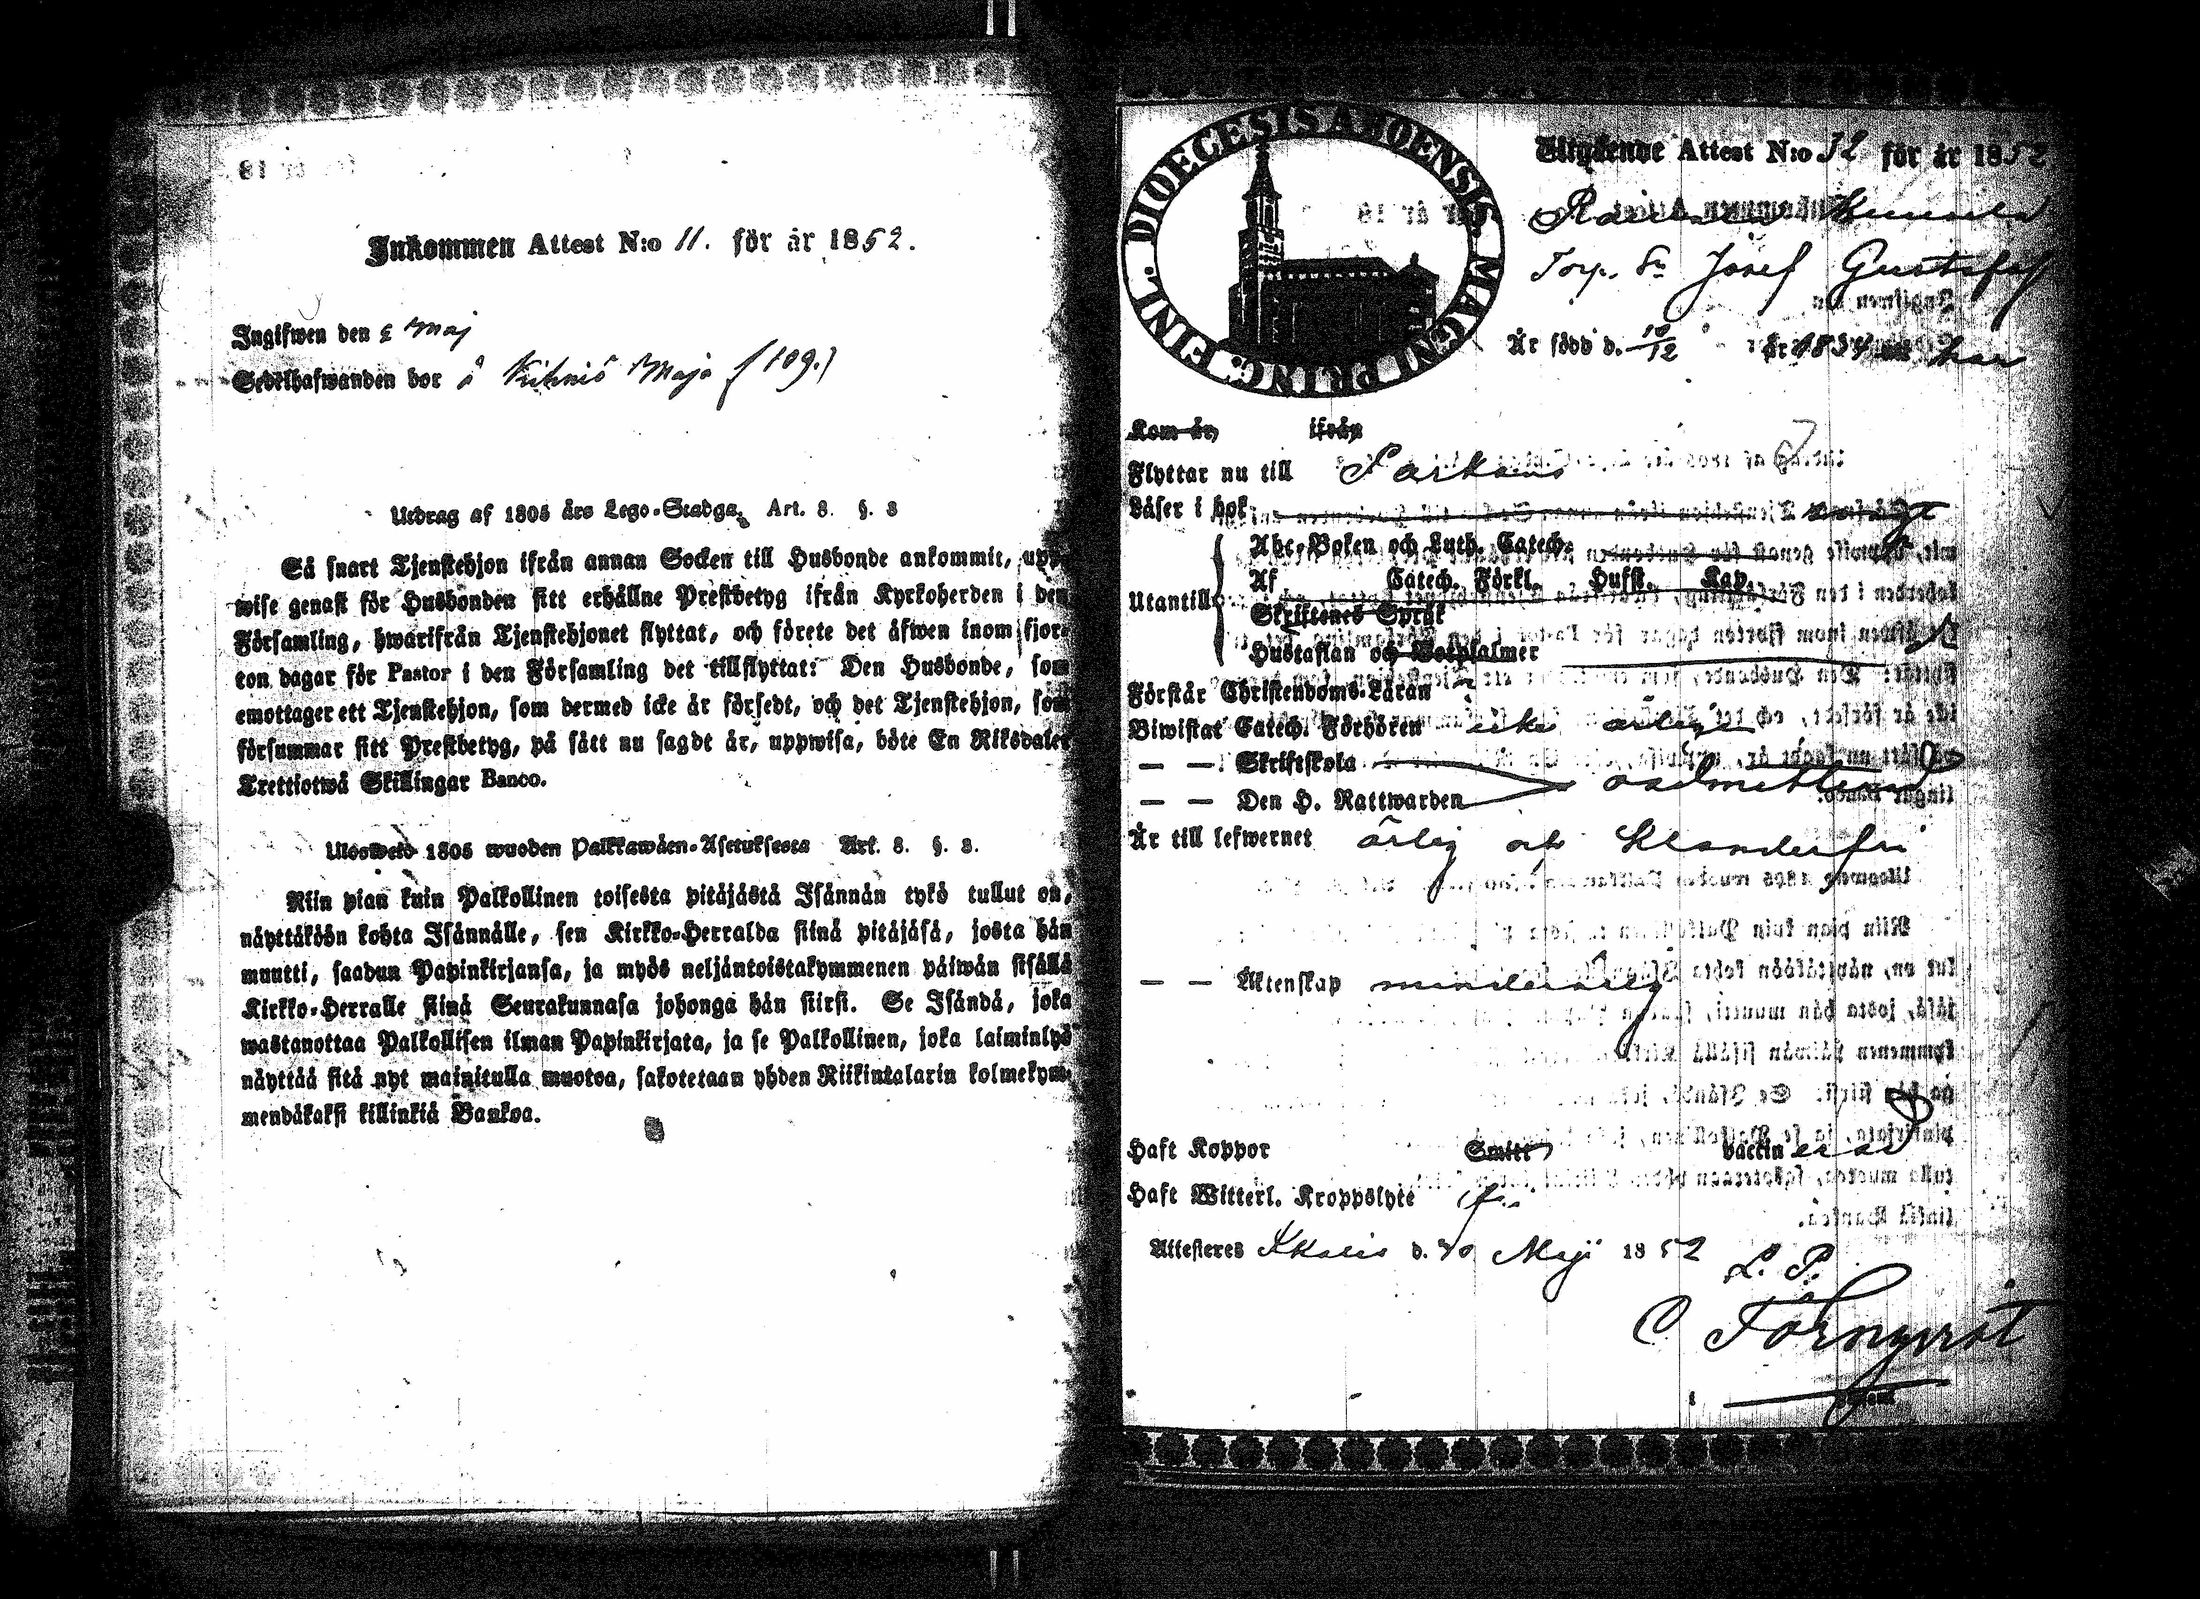 Inkommen Attest N:o 11. för år 1852.
Ingifwen den Maj
Sedelhafwanden bor å Kihniö Maja f 109.)
Utdrag af 1805 års Lego-Stadga, Art. 8. §. 3
Så snart Tjenstehjon ifrån annan Socken till Husbonde ankommit, upp-
wise genast för Husbonden sitt erhållne Prestbetyg ifrån Kyrkoherden i den
Församling, hwarifrån Tjenstehjonet flyttat, och förete det äfwen inom fjor-
ton dagar för Pastor i den Församling det tillflyttat: Den Husbonde, som
emottager ett Tjenstehjon, som dermed icke är försedt, och det Tjenstehjon, som
försummar sitt Prestbetyg, på sätt nu sagdt är, uppwisa, böte En Riksdaler
Trettiotwå Skillingar Banco.
Ulosweto 1805 wuoden Palkkawäen-Asetuksesta Art. 8. §. 3.
Niin pian kuin Palkollinen toisesta pitäjästä Isännän tykö tullut on,
näyttäköön kohta Isännälle, sen Kirkko-Herralda siinä pitäjäsä, josta hän
muutti, saadun Papinkirjansa, ja myös neljäntoistakymmenen päiwän sisällä
Kirkko-Herralle siinä Seurakunnasa johonga hän siirsi. Se Isändä, joka
wastanottaa Palkollisen ilman Papinkirjata, ja se Palkollinen, joka laiminlyö
näyttää sitä nyt mainitulla muotoa, sakotetaan yhden Riikintalarin kolmekym-
mendäkaksi killinkiä Bankoa.
DIOECESIS ABOENSIS. MAGNI PRINC. FINL.
Utgående Attest N:o 32 för år 1852
Torp. Sn Josef Gustafss
Är född d. 10/12 år 1834 har
Kom år ifrån
Flyttar nu till Parkano
Läser i bok
Utantill
Abc-Boken och Luth. Catech.
Af Catech. Förkl. Hufst. Kap.
Skriftenes Språk
Hustaflan och Botpsalmer
Förstår Christendoms-Läran
Biwistat Catech. Förhören icke årligen
— — Skriftskola
— — Den H. Nattwarden oadmitterad
Är till lefwernet ärlig och klanderfri
— — Äktenskap minderårig
Haft Koppor Smitt Vaccinerad
Haft Witterl. Kroppslyte
Attesteres Ikalis d. Maji 1852
L. P.
C Törnqvist